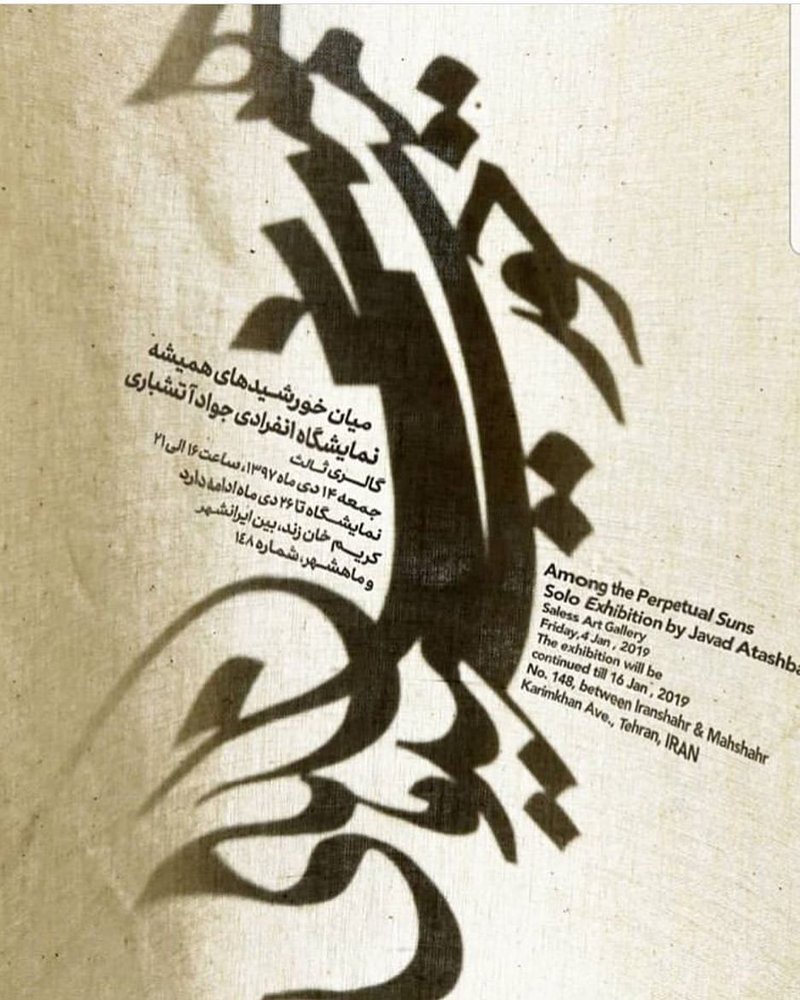 میان خورشیدهای همیشه
نمایشگاه انفرادی جواد آتشباری
گالری ثالث
جمعه ۱۴ دی ماه ۱۳۹۷، ساعت ۱۶ الی ۲۱
نمایشگاه تا ۲۶ دی ماه ادامه دارد
کریم خان زند، بین ایرانشهر
و ماهشهر، شماره ۱٤۸
Among the Perpetual Suns
Solo Exhibition by Javad Atashba
Saless Art Gallery
Friday, 4 Jan , 2019
The exhibition will be
continued till 16 Jan , 2019
No. 148, between Iranshahr & Mahshahr
Karimkhan Ave., Tehran, IRAN